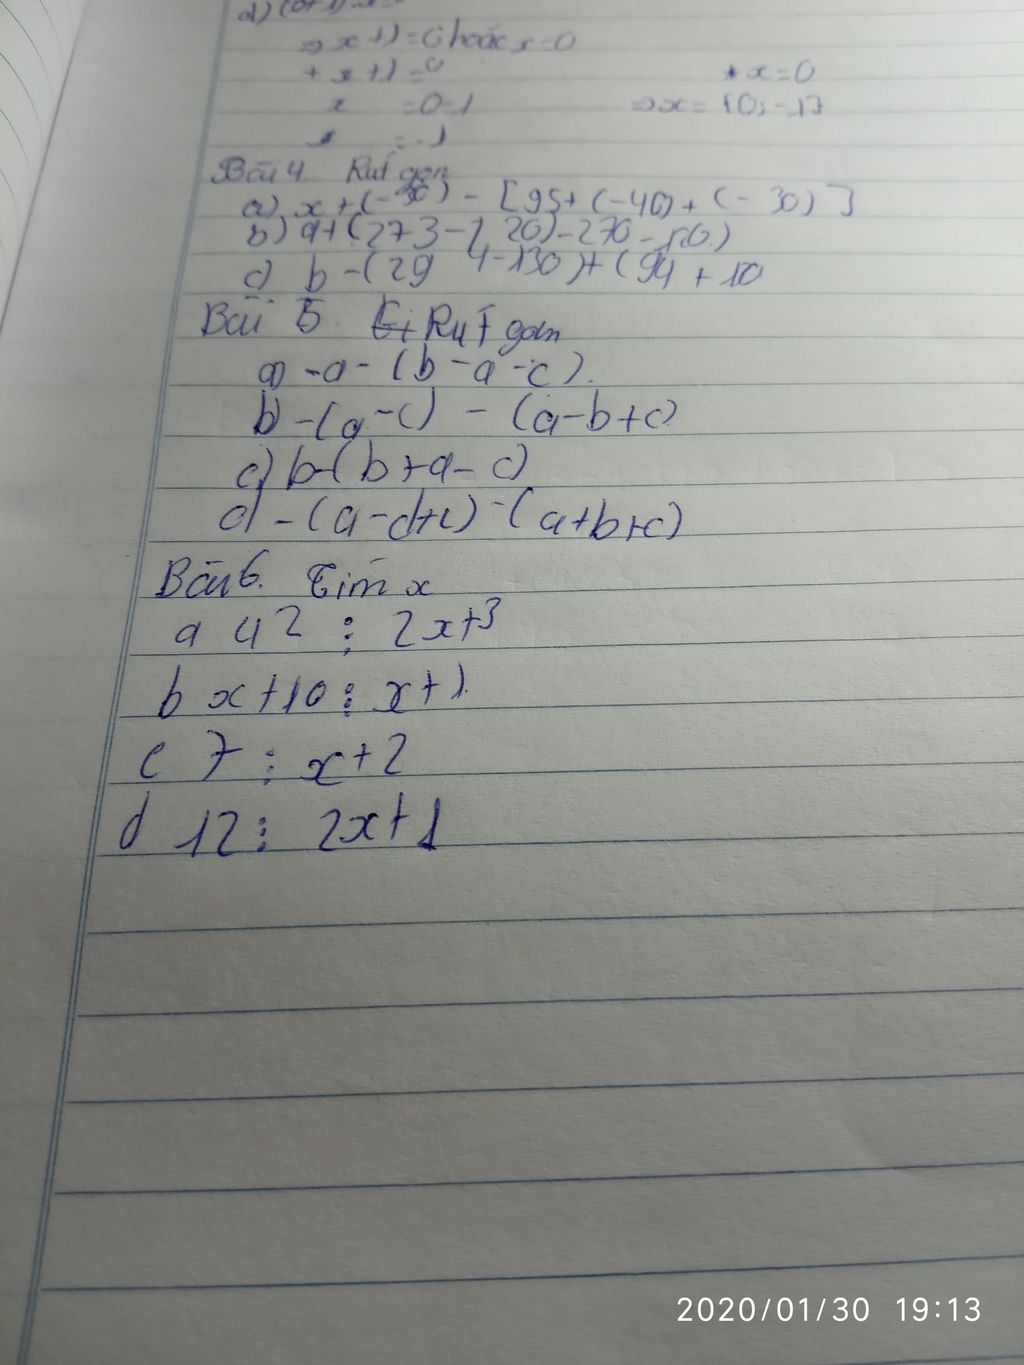 d) (x+1).x=0
=> x+1=0 hoặc x=0
+ x+1=0 * x=0
x =0-1 => x= {0;-1}
x =-1
Bài 4. Rút gọn
a) x+(-30) - [95+(-40)+(-30)]
b) a+(273-120)-270-120)
c) b-(294-130)+(94+10
Bài 5. Rút gọn
a) -a-(b-a-c).
b) -(a-c) - (a-b+c)
c) b-(b+a-c)
d -(a-d+c)-(a+b+c)
Bài 6. Tìm x
a 42 ⋮ 2x+3
b x+10 ⋮ x+1.
c 7 ⋮ x+2
d 12 ⋮ 2x+1
2020/01/30 19:13